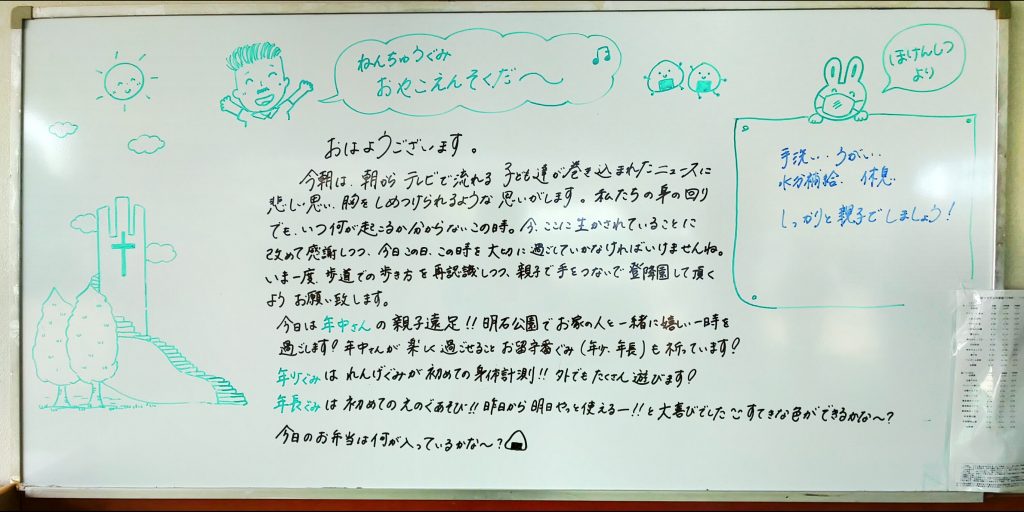 ねんちゅうぐみ
おやこえんそくだ〜
ほけんしつ
より
手洗い、うがい、
水分補給、休息
しっかりと親子でしましょう!
おはようございます。
今朝は、朝からテレビで流れる子ども達が巻き込まれたニュースに
悲しい思い、胸をしめつけられるような思いがします。私たちの身の回り
でも、いつ何が起こるか分からないこの時。今、ここに生かされていることに
改めて感謝しつつ、今日この日、この時を大切に過ごしていかなければいけませんね。
いま一度、歩道での歩き方を再認識しつつ、親子で手をつないで登降園して頂く
よう お願い致します。
今日は年中さんの親子遠足!!明石公園でお家の人と一緒に嬉しい一時を
過ごします♪年中さんが楽しく過ごせることお留守番ぐみ(年少、年長)も祈っています♪
年少ぐみは れんげぐみが初めての身体計測!!外でもたくさん遊びます♪
年長ぐみは初めてのえのぐあそび!!昨日から明日やっと使えるー!!と大喜びでした すてきな色ができるかな〜?
今日のお弁当は何が入っているかな〜?